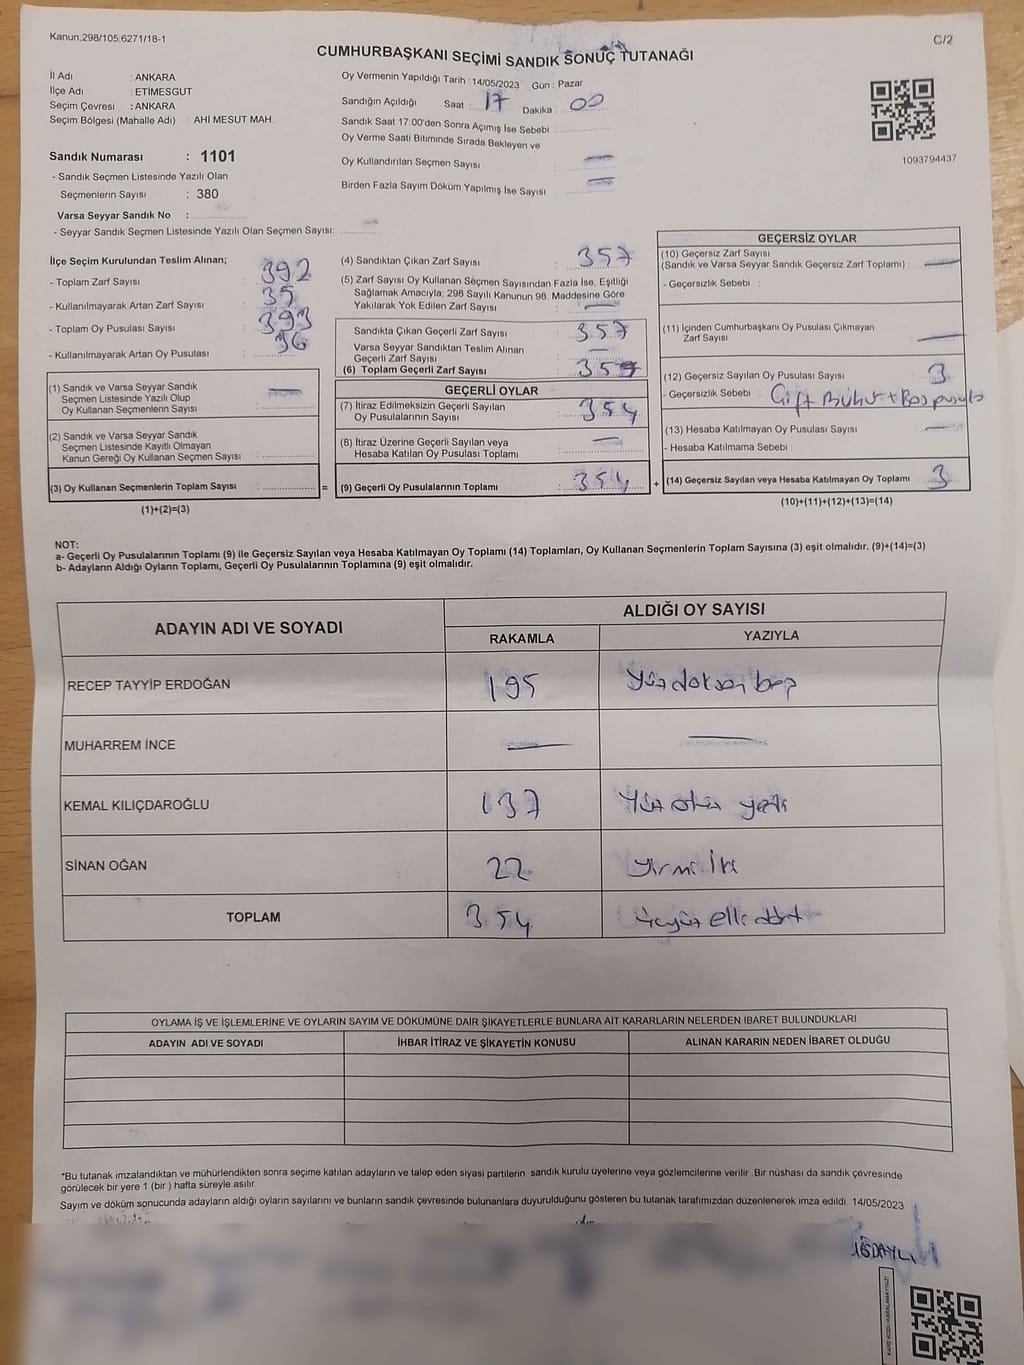 Kanun;298/105,6271/18-1
C/2
CUMHURBAŞKANI SEÇİMİ SANDIK SONUÇ TUTANAĞI
İl Adı : ANKARA
İlçe Adı : ETİMESGUT
Seçim Çevresi : ANKARA
Seçim Bölgesi (Mahalle Adı) : AHİ MESUT MAH.
Sandık Numarası : 1101
- Sandık Seçmen Listesinde Yazılı Olan
Seçmenlerin Sayısı : 380
Varsa Seyyar Sandık No :
- Seyyar Sandık Seçmen Listesinde Yazılı Olan Seçmen Sayısı:
Oy Vermenin Yapıldığı Tarih : 14/05/2023 Gün : Pazar
Sandığın Açıldığı Saat : 17 Dakika : 00
Sandık Saat 17:00'den Sonra Açımış İse Sebebi :
Oy Verme Saati Bitiminde Sırada Bekleyen ve
Oy Kullandırılan Seçmen Sayısı : —
Birden Fazla Sayım Döküm Yapılmış İse Sayısı : —
1093794437
İlçe Seçim Kurulundan Teslim Alınan;
- Toplam Zarf Sayısı : 392
- Kullanılmayarak Artan Zarf Sayısı : 35
- Toplam Oy Pusulası Sayısı : 393
- Kullanılmayarak Artan Oy Pusulası : 36
(1) Sandık ve Varsa Seyyar Sandık
Seçmen Listesinde Yazılı Olup
Oy Kullanan Seçmenlerin Sayısı : —
(2) Sandık ve Varsa Seyyar Sandık
Seçmen Listesinde Kayıtlı Olmayan
Kanun Gereği Oy Kullanan Seçmen Sayısı :
(3) Oy Kullanan Seçmenlerin Toplam Sayısı : =
(1)+(2)=(3)
(4) Sandıktan Çıkan Zarf Sayısı : 357
(5) Zarf Sayısı Oy Kullanan Seçmen Sayısından Fazla İse, Eşitliği
Sağlamak Amacıyla; 298 Sayılı Kanunun 98. Maddesine Göre
Yakılarak Yok Edilen Zarf Sayısı : —
Sandıkta Çıkan Geçerli Zarf Sayısı : 357
Varsa Seyyar Sandıktan Teslim Alınan
Geçerli Zarf Sayısı : —
(6) Toplam Geçerli Zarf Sayısı : 357
GEÇERLİ OYLAR
(7) İtiraz Edilmeksizin Geçerli Sayılan
Oy Pusulalarının Sayısı : 354
(8) İtiraz Üzerine Geçerli Sayılan veya
Hesaba Katılan Oy Pusulası Toplamı : —
(9) Geçerli Oy Pusulalarının Toplamı : 354 +
GEÇERSİZ OYLAR
(10) Geçersiz Zarf Sayısı
(Sandık ve Varsa Seyyar Sandık Geçersiz Zarf Toplamı) : —
- Geçersizlik Sebebi :
(11) İçinden Cumhurbaşkanı Oy Pusulası Çıkmayan
Zarf Sayısı : —
(12) Geçersiz Sayılan Oy Pusulası Sayısı : 3
- Geçersizlik Sebebi : Çift Mühür + Boş pusula
(13) Hesaba Katılmayan Oy Pusulası Sayısı : —
- Hesaba Katılmama Sebebi :
(14) Geçersiz Sayılan veya Hesaba Katılmayan Oy Toplamı : 3
(10)+(11)+(12)+(13)=(14)
NOT:
a- Geçerli Oy Pusulalarının Toplamı (9) ile Geçersiz Sayılan veya Hesaba Katılmayan Oy Toplamı (14) Toplamları, Oy Kullanan Seçmenlerin Toplam Sayısına (3) eşit olmalıdır. (9)+(14)=(3)
b- Adayların Aldığı Oyların Toplamı, Geçerli Oy Pusulalarının Toplamına (9) eşit olmalıdır.
ADAYIN ADI VE SOYADI
ALDIĞI OY SAYISI
RAKAMLA YAZIYLA
RECEP TAYYİP ERDOĞAN 195 Yüzdoksan beş
MUHARREM İNCE — —
KEMAL KILIÇDAROĞLU 137 Yüz otuz yedi
SİNAN OĞAN 22 yirmi İki
TOPLAM 354 üçyüz elli dört
OYLAMA İŞ VE İŞLEMLERİNE VE OYLARIN SAYIM VE DÖKÜMÜNE DAİR ŞİKAYETLERLE BUNLARA AİT KARARLARIN NELERDEN İBARET BULUNDUKLARI
ADAYIN ADI VE SOYADI İHBAR İTİRAZ VE ŞİKAYETİN KONUSU ALINAN KARARIN NEDEN İBARET OLDUĞU
*Bu tutanak imzalandıktan ve mühürlendikten sonra seçime katılan adayların ve talep eden siyasi partilerin sandık kurulu üyelerine veya gözlemcilerine verilir. Bir nüshası da sandık çevresinde
görülecek bir yere 1 (bir) hafta süreyle asılır.
Sayım ve döküm sonucunda adayların aldığı oyların sayılarını ve bunların sandık çevresinde bulunanlara duyurulduğunu gösteren bu tutanak tarafımızdan düzenlenerek imza edildi. 14/05/2023